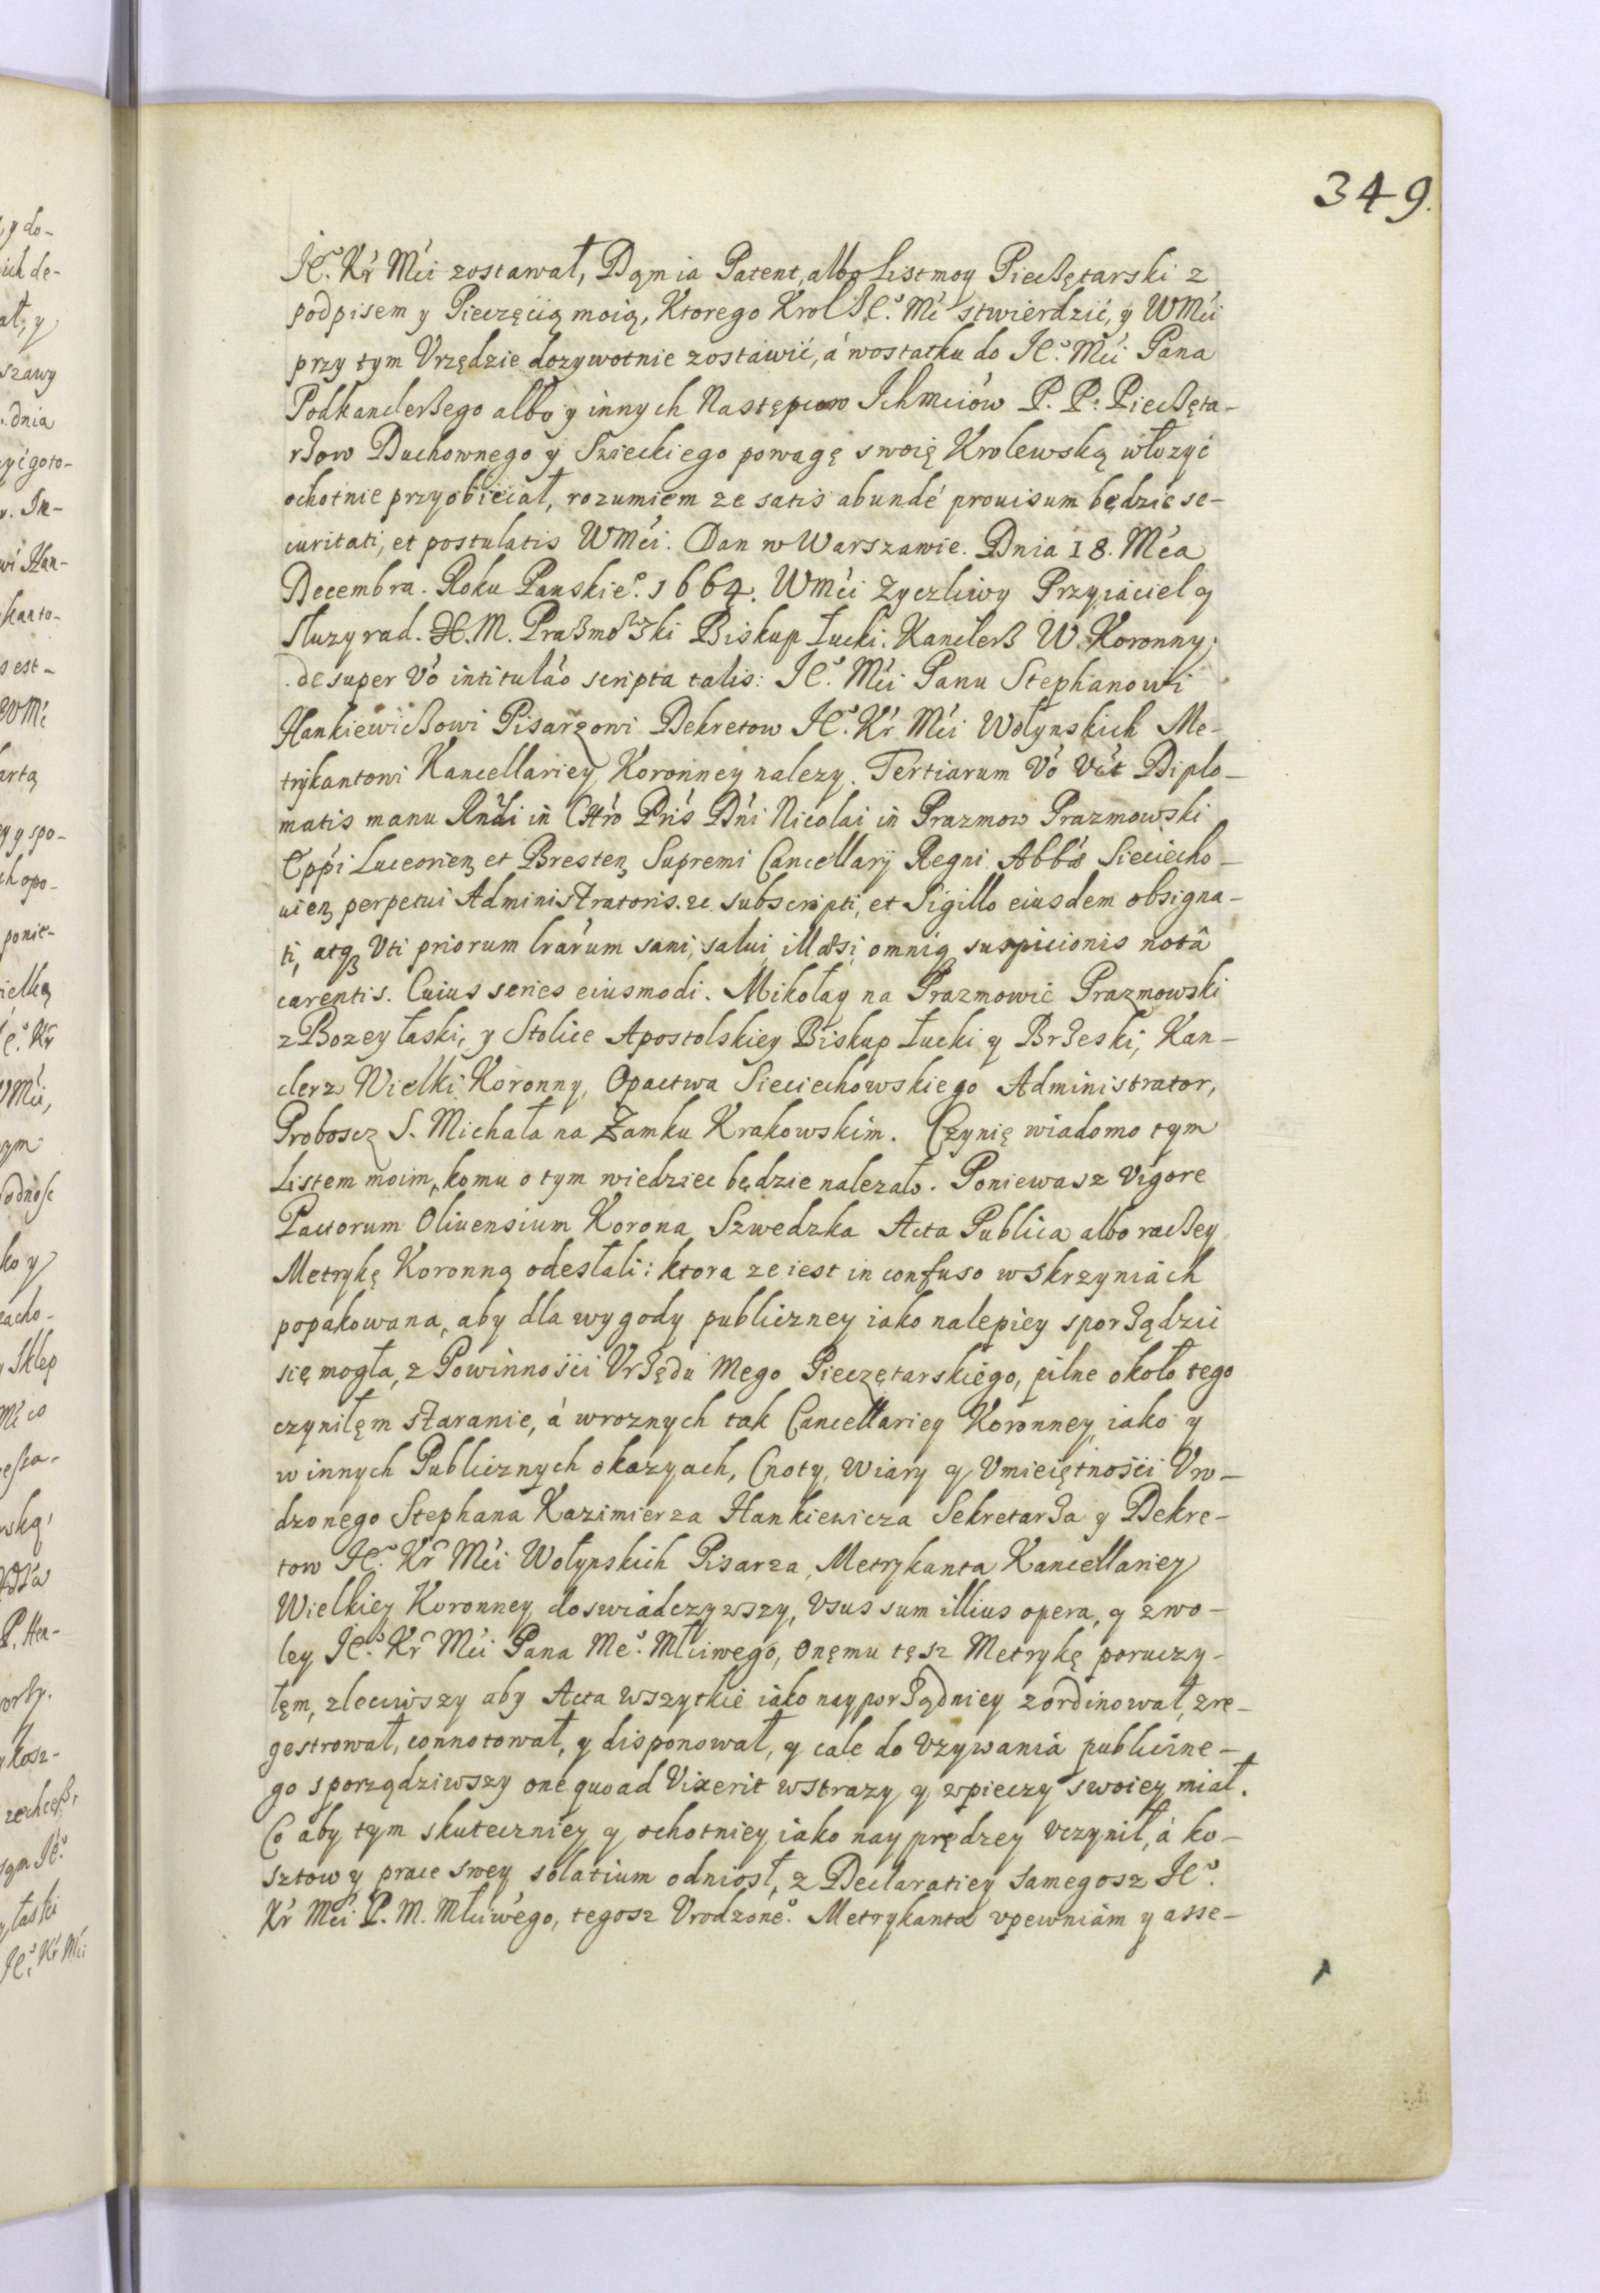 349.
Je͠. Kr Mći zostawał, Dąm ia Patent, albo List moy Pieczętarski z
podpisem y Pieczęcią moią, Ktorego Krol Je͠. Mć stwierdzić, y WMći
przy tym Vrzędzie dozywotnie zostawić, á wostatku do Je͠. Mći Pana
Podkanclerßego albo y innych Następcow Ichmciów P. P. Pieczęta-
rzow Duchownego y Swieckiego powagę swoię Krolewską włozyć
ochotnie przyobiecał, rozumiem ze satis abundé prouisum będzie se-
curitati, et postulatis WMći. Dan w Warszawie. Dnia 18. Mća
Decembra. Roku Panskie͠. 1664. WMći Zyczliwy Przyiaciel y
Sluzyrad. X. M. Praßmowski Biskup Łucki. Kanclerß W. Koronny;
desuper Vó intituláo scripta talis: Je͠. Mći Panu Stephanowi
Hankiewiczowi Pisarzowi Dekretow Je͠. Kr Mći Wołynskich Me-
trykantowi Kancellariey Koronney nalezy. Tertiarum Vó Vćt Diplo-
matis manu Rndi in Chro Pris Dńi Nicolai in Prazmow Prazmowski
Eppi Luceorien et Bresten Supremi Cancellarij Regni Abbs Sieciecho-
uien perpetui Administratoris. &c. subscripti, et Sigillo eiusdem obsigna-
ti, atq Vti priorum lrarum sani, salui, illæsi, omniq suspicionis notâ
carentis. Cuius series eiusmodi. Mikołay na Prazmowie Prazmowski
z Bozey łaski, y Stolice Apostolskiey Biskup Łucki y Brzeski, Kan-
clerz Wielki Koronny, Opactwa Sieciechowskiego Administrator,
Proboscz S. Michała na Zamku Krakowskim. Czynię wiadomo tym
Listem moim, komu o tym wiedziec będzie nalezało. Poniewasz Vigore
Pactorum Oliuensium Korona Szwedzka Acta Publica albo raczey
Metrykę Koronną odesłali: ktora ze iest in confuso w skrzyniách
popakowana, aby dla wygody publiczney iako nalepiey sporządzic
się mogła, z Powinnośći Vrzędu Mego Pieczętarskiego, pilne około tego
czyniłęm staranie, á wroznych tak Cancellariey Koronney, iako y
w innych Publicznych okazyach, Cnoty, Wiary y Vmieiętności Vro-
dzonego Stephana Kazimierza Hankiewicza Sekretarza y Dekre-
tow Je͠. Kr Mći Wołynskich Pisarza, Metrykanta Kancellariey
Wielkiey Koronney doswiádczywszy, Vsus sum illius opera, y zwo-
ley Je͠. Kr Mći Pana Me͠. Młciwego, onęmu tęsz Metrykę poruczy-
łęm, zleciwszy aby Acta wszytkie iako nayporządniey zordinował, zre-
gestrował, connotował, y disponował, y cale do Vzywania publiczne-
go sporządziwszy one quoad Vixerit wstrazy y wpieczy swoiey miał.
Co aby tym skuteczniey y ochotniey iako nayprędzey Vczynił, á ko-
sztow y prace swey solatium odniosł, z Declaratiey samegosz Je͠.
Kr Mći P. M. Młciwego, tegosz Vrodzone͠. Metrykanta vpewniám y asse-